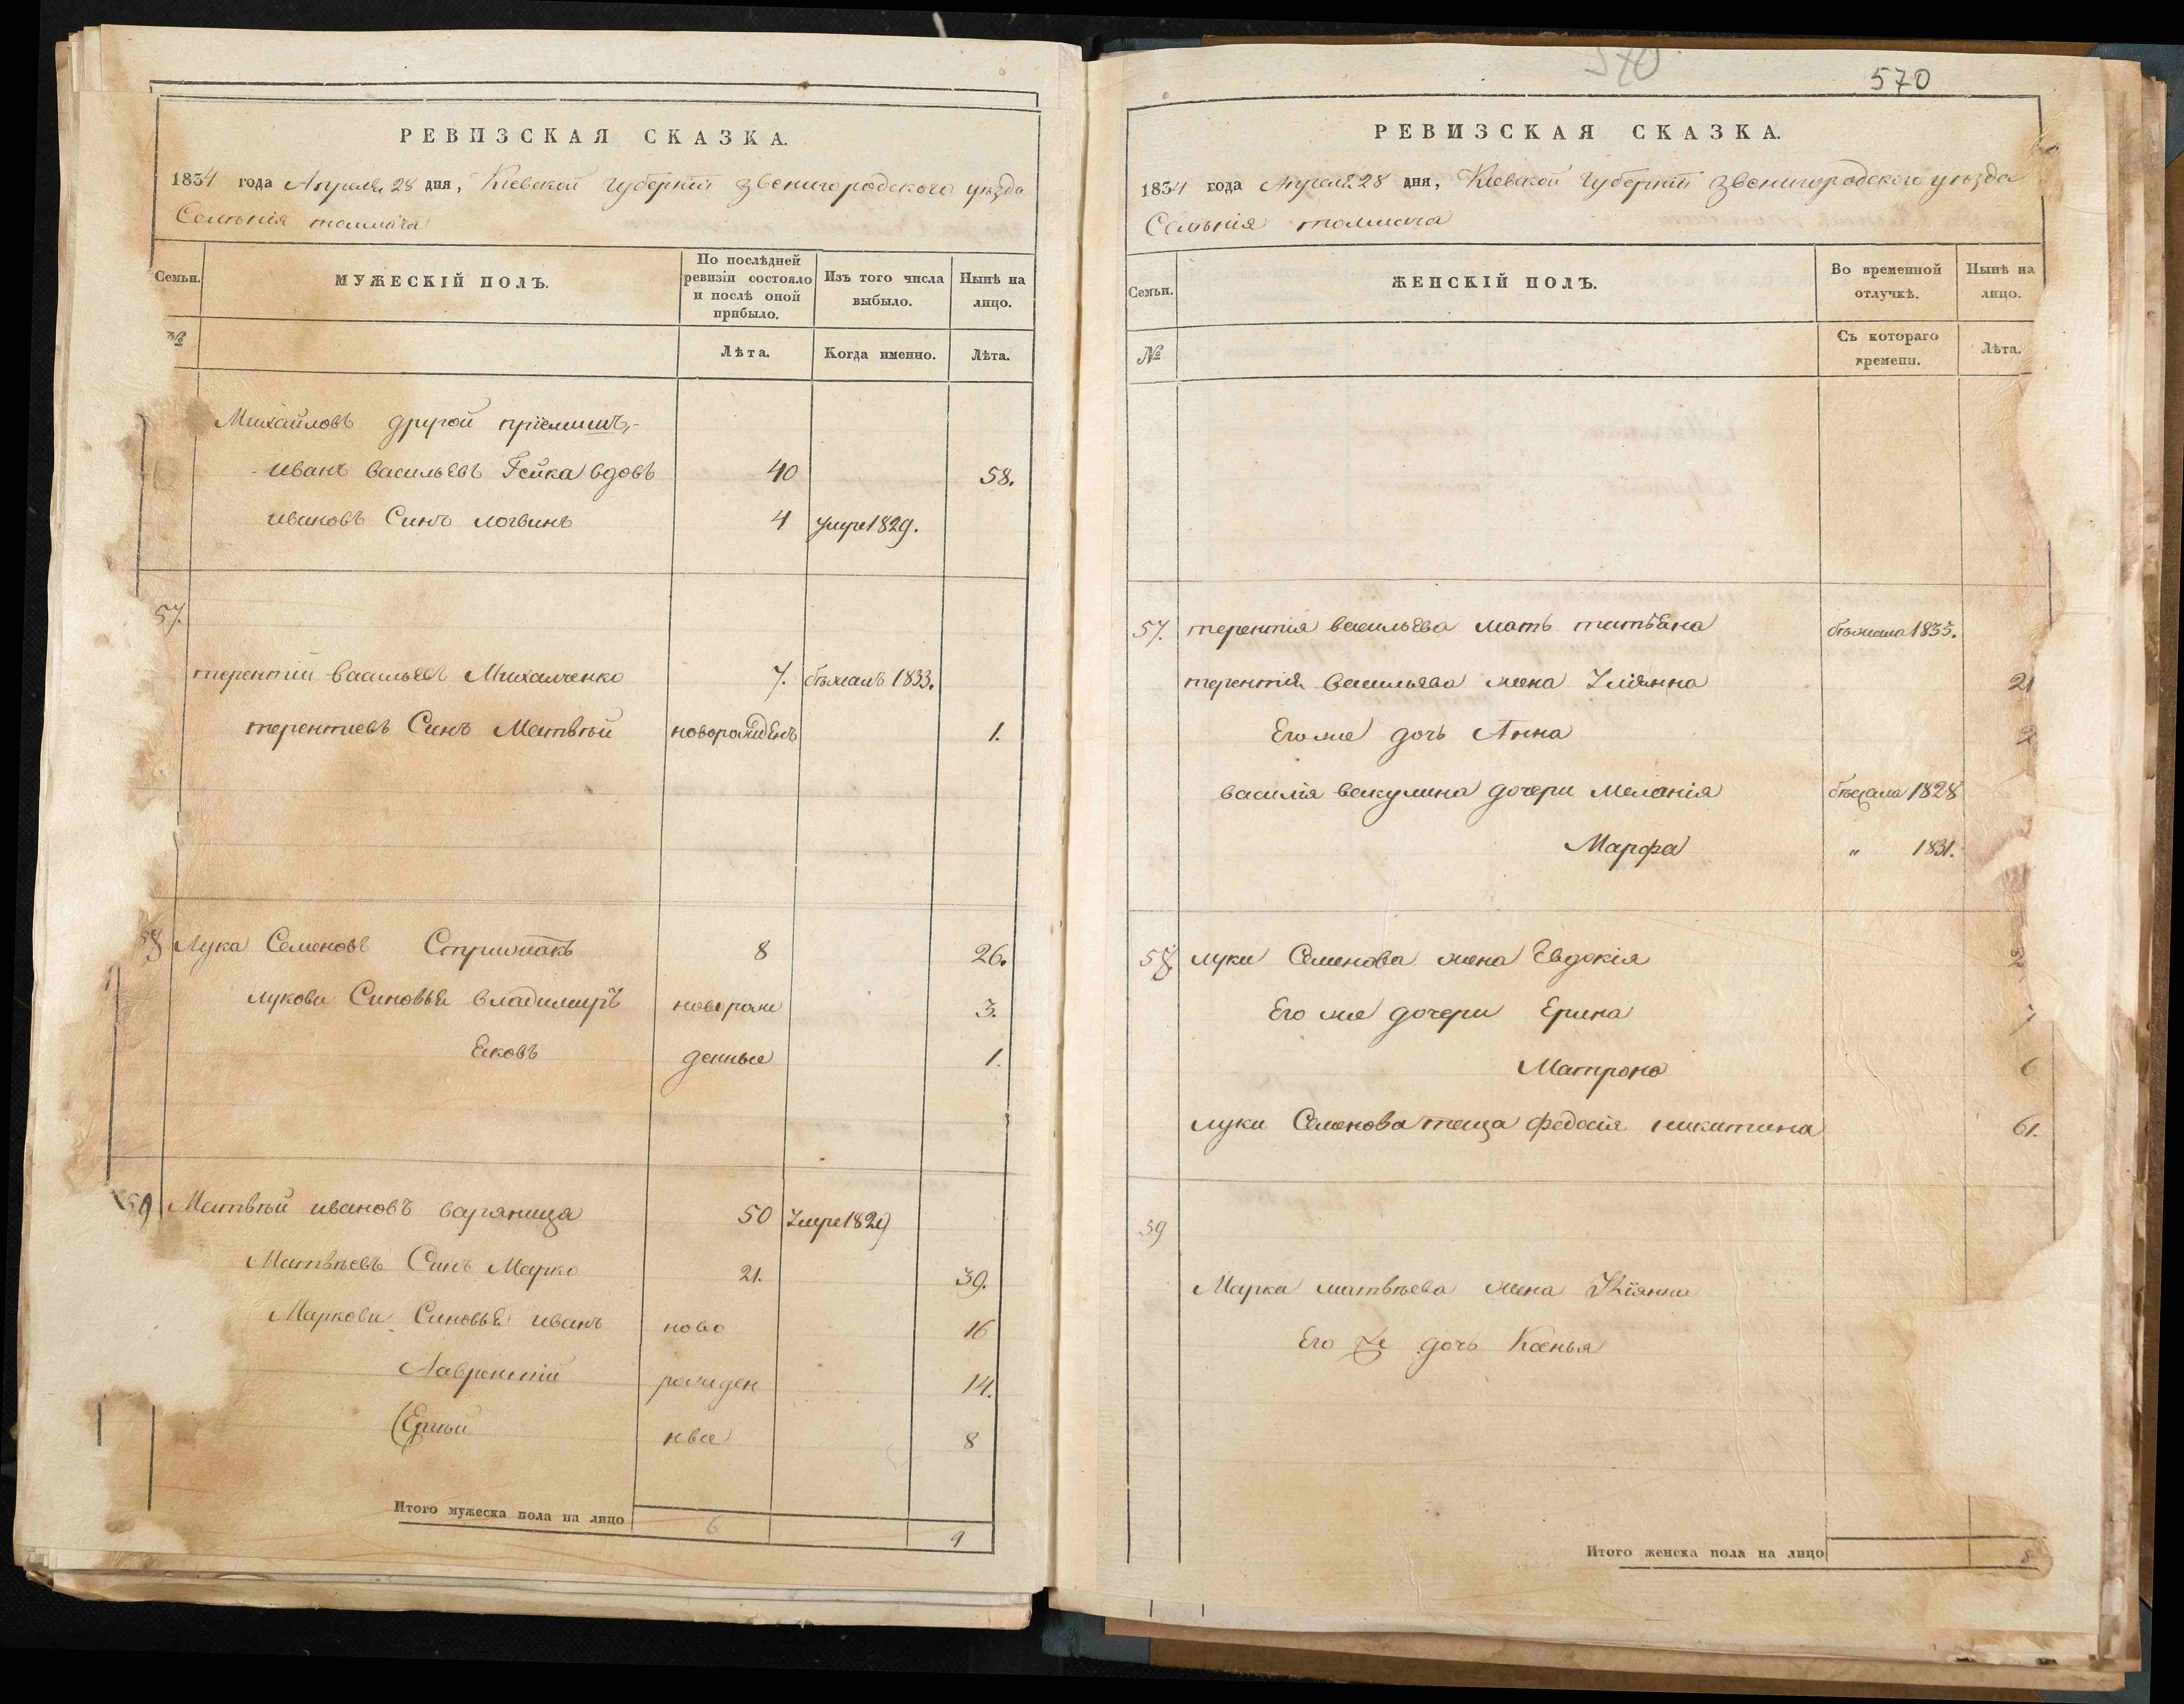 РЕВИЗСКАЯ СКАЗКА.
1834 года Апреля 28 дня, Кіевской губерніи звенигородского уѣзда
Селѣнія толмача
Семьи.
МУЖЕСКІЙ ПОЛЪ.
По послѣдней ревизіи состояло и послѣ оной прибыло.
Изъ того числа выбыло.
Нынѣ на лицо.
№
Лѣта.
Когда именно.
Лѣта.
Михайловъ другой пріемишъ,-
-иванъ васильевъ Гейка вдовъ 40 58.
ивановъ Синъ логвинъ 4 умре 1829.
57.
терентій васильевъ Михалченко 7. бѣжалъ 1833.
терентиевъ Синъ Матвѣй новорожденъ 1.
58 Лука Семеновъ 8 26.
лукови Синовья владимиръ новорож 3.
Яковъ денные 1.
59 Матвѣй ивановъ варяница 50 Умре 1829
Матвѣевъ Синъ Марко 21. 39.
Маркови Синовья иванъ ново 16
Лаврентій рожден 14.
ные 8
Итого мужеска пола на лицо 6 9
570
570
РЕВИЗСКАЯ СКАЗКА.
1834 года Апреля 28 дня, Кіевской губерніи звенигородского уѣзда
Селѣнія толмача
Семьи.
ЖЕНСКІЙ ПОЛЪ.
Во временной отлучкѣ.
Нынѣ на лицо.
№
Съ котораго времени.
Лѣта.
57. терентія васильева мать татьяна бѣжала 1833.
терентія васильева жена Уліянна 21
Его же дочь Анна 2
василія вакулина дочери Меланія бѣжала 1828
Марфа " 1831.
58 луки Семенова жена Евдокія 2
Его же дочери Ерина 7
Матрона 6
луки Семенова теща федосія никитина 61.
59
Марка матвѣева жена Уліянна
Его же дочь Ксенья
Итого женска пола на лицо 8